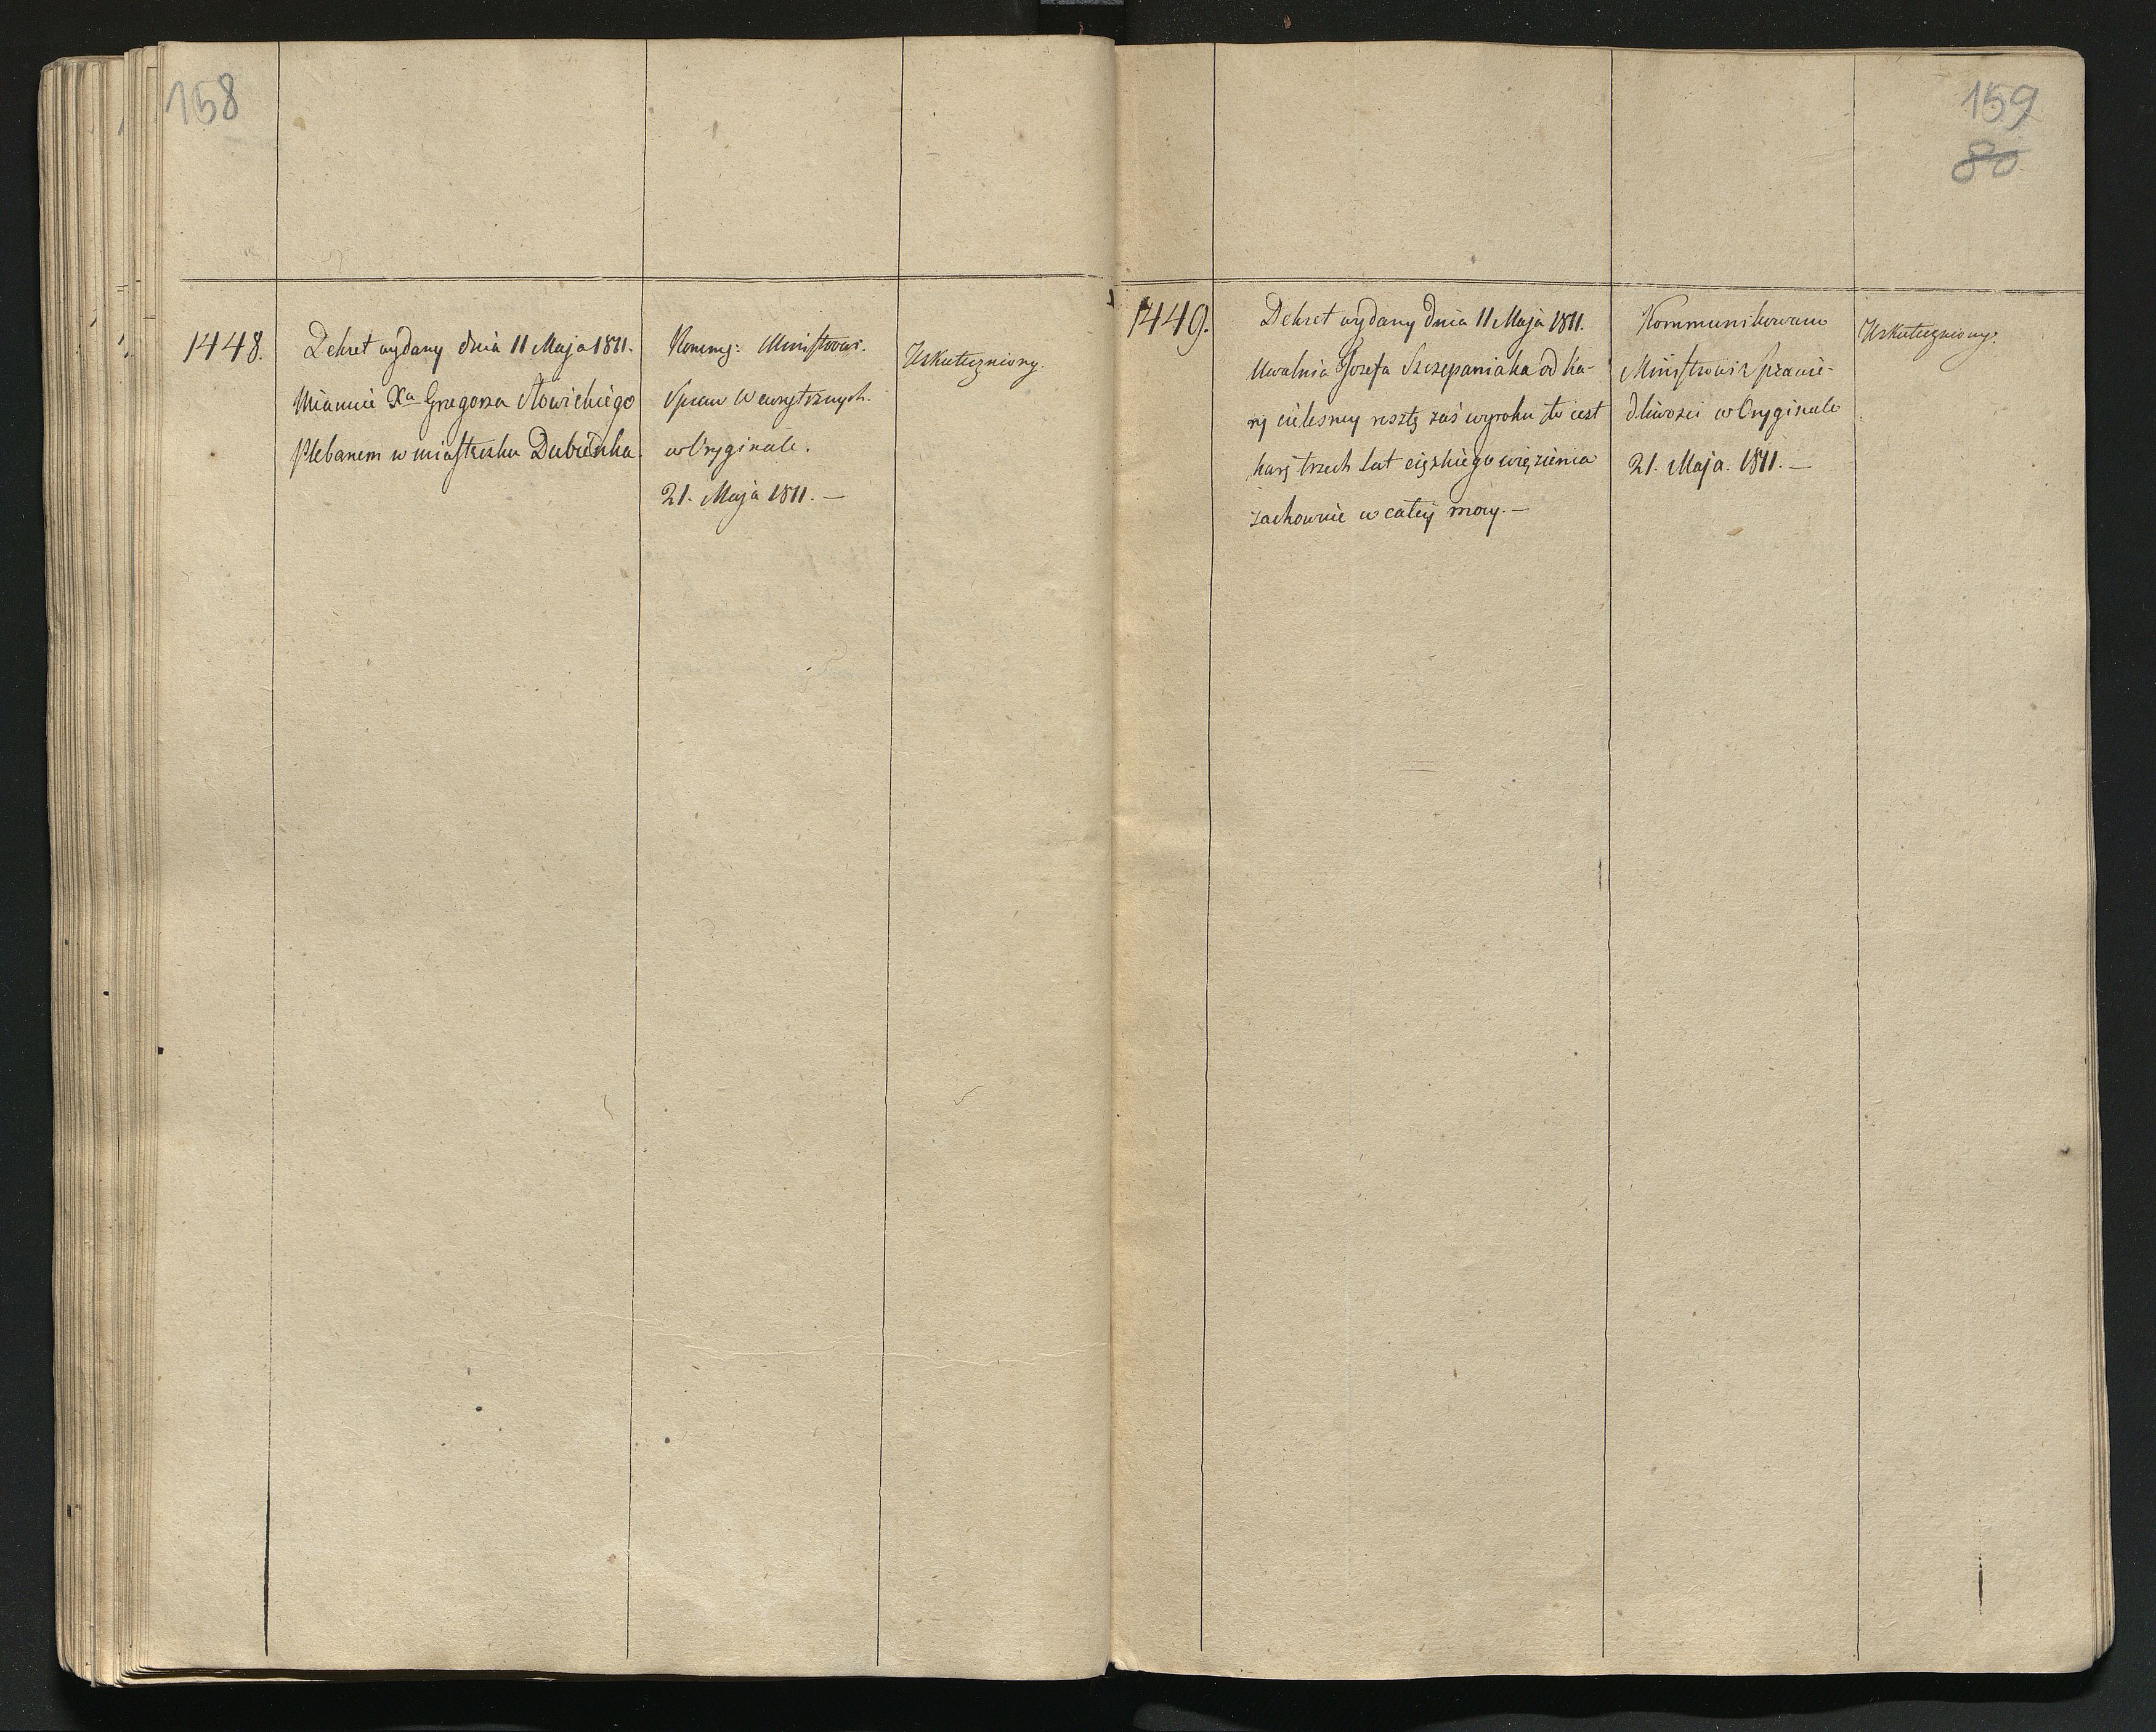 158
1448.
Dekret wydany dnia 11 Maja 1811.
Mianuie Xa Grzegorza Nowickiego
Plebanem w miasteczku Dubience
Kommg: Ministrowi.
Spraw Wewnętrznych.
w Oryginale.
21. Maja 1811. —
Uskuteczniony.
159
80
1449.
Dekret wydany dnia 11 Maja 1811.
Uwalnia Jozefa Szczepaniaka od ka-
ry cielesney resztę zaś wyroku to iest
karę trzech lat cięzkiego więzienia
zachowuie w całey mocy. —
Kommunikowano
Ministrowi Sprawie-
dliwosci w Oryginale
21. Maja. 1811. —
Uskuteczniony.